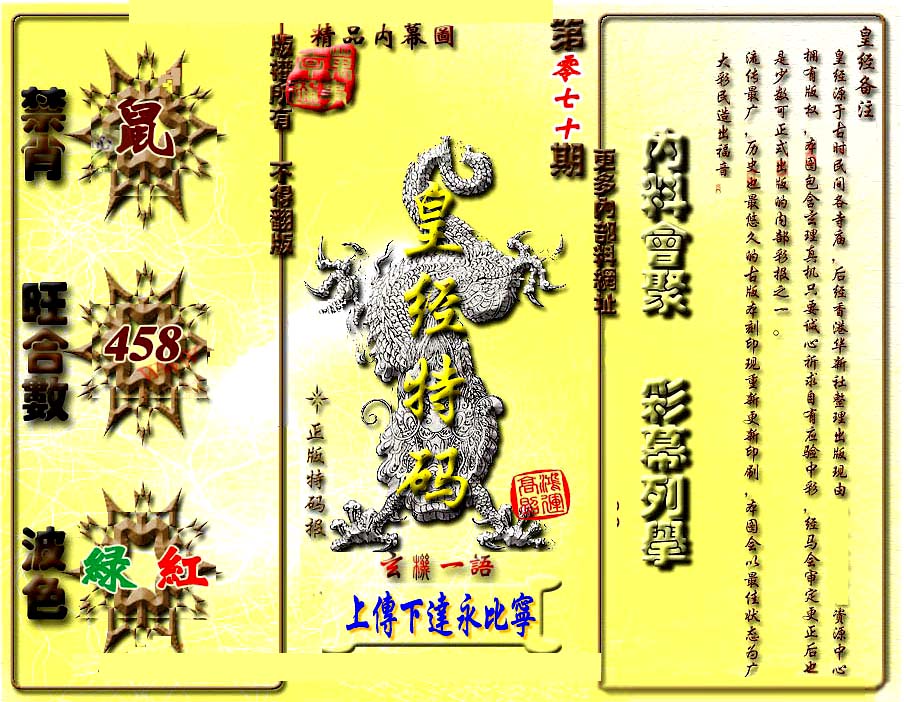 皇经备注
皇经源于古时民间各寺庙，后经香港华新社整理出版现由 资源中心
拥有版权，本图包含玄理真机只要诚心祈求自有应验中彩，经马会审定更正后也
是少数可正式出版的内部彩报之一。
流传最广，历史也最悠久的古版本刻印现重新更新印刷，本图会以最佳状态为广
大彩民造出福音。
内料會聚 彩幕列舉
更多内部料網址
第零七十期
精品内幕圖
版權所有 不得翻版
皇经特码
正版特码报
鴻運高照
玄機一語
上傳下達永比寧
禁肖
鼠
旺合數
458
波色
綠 紅